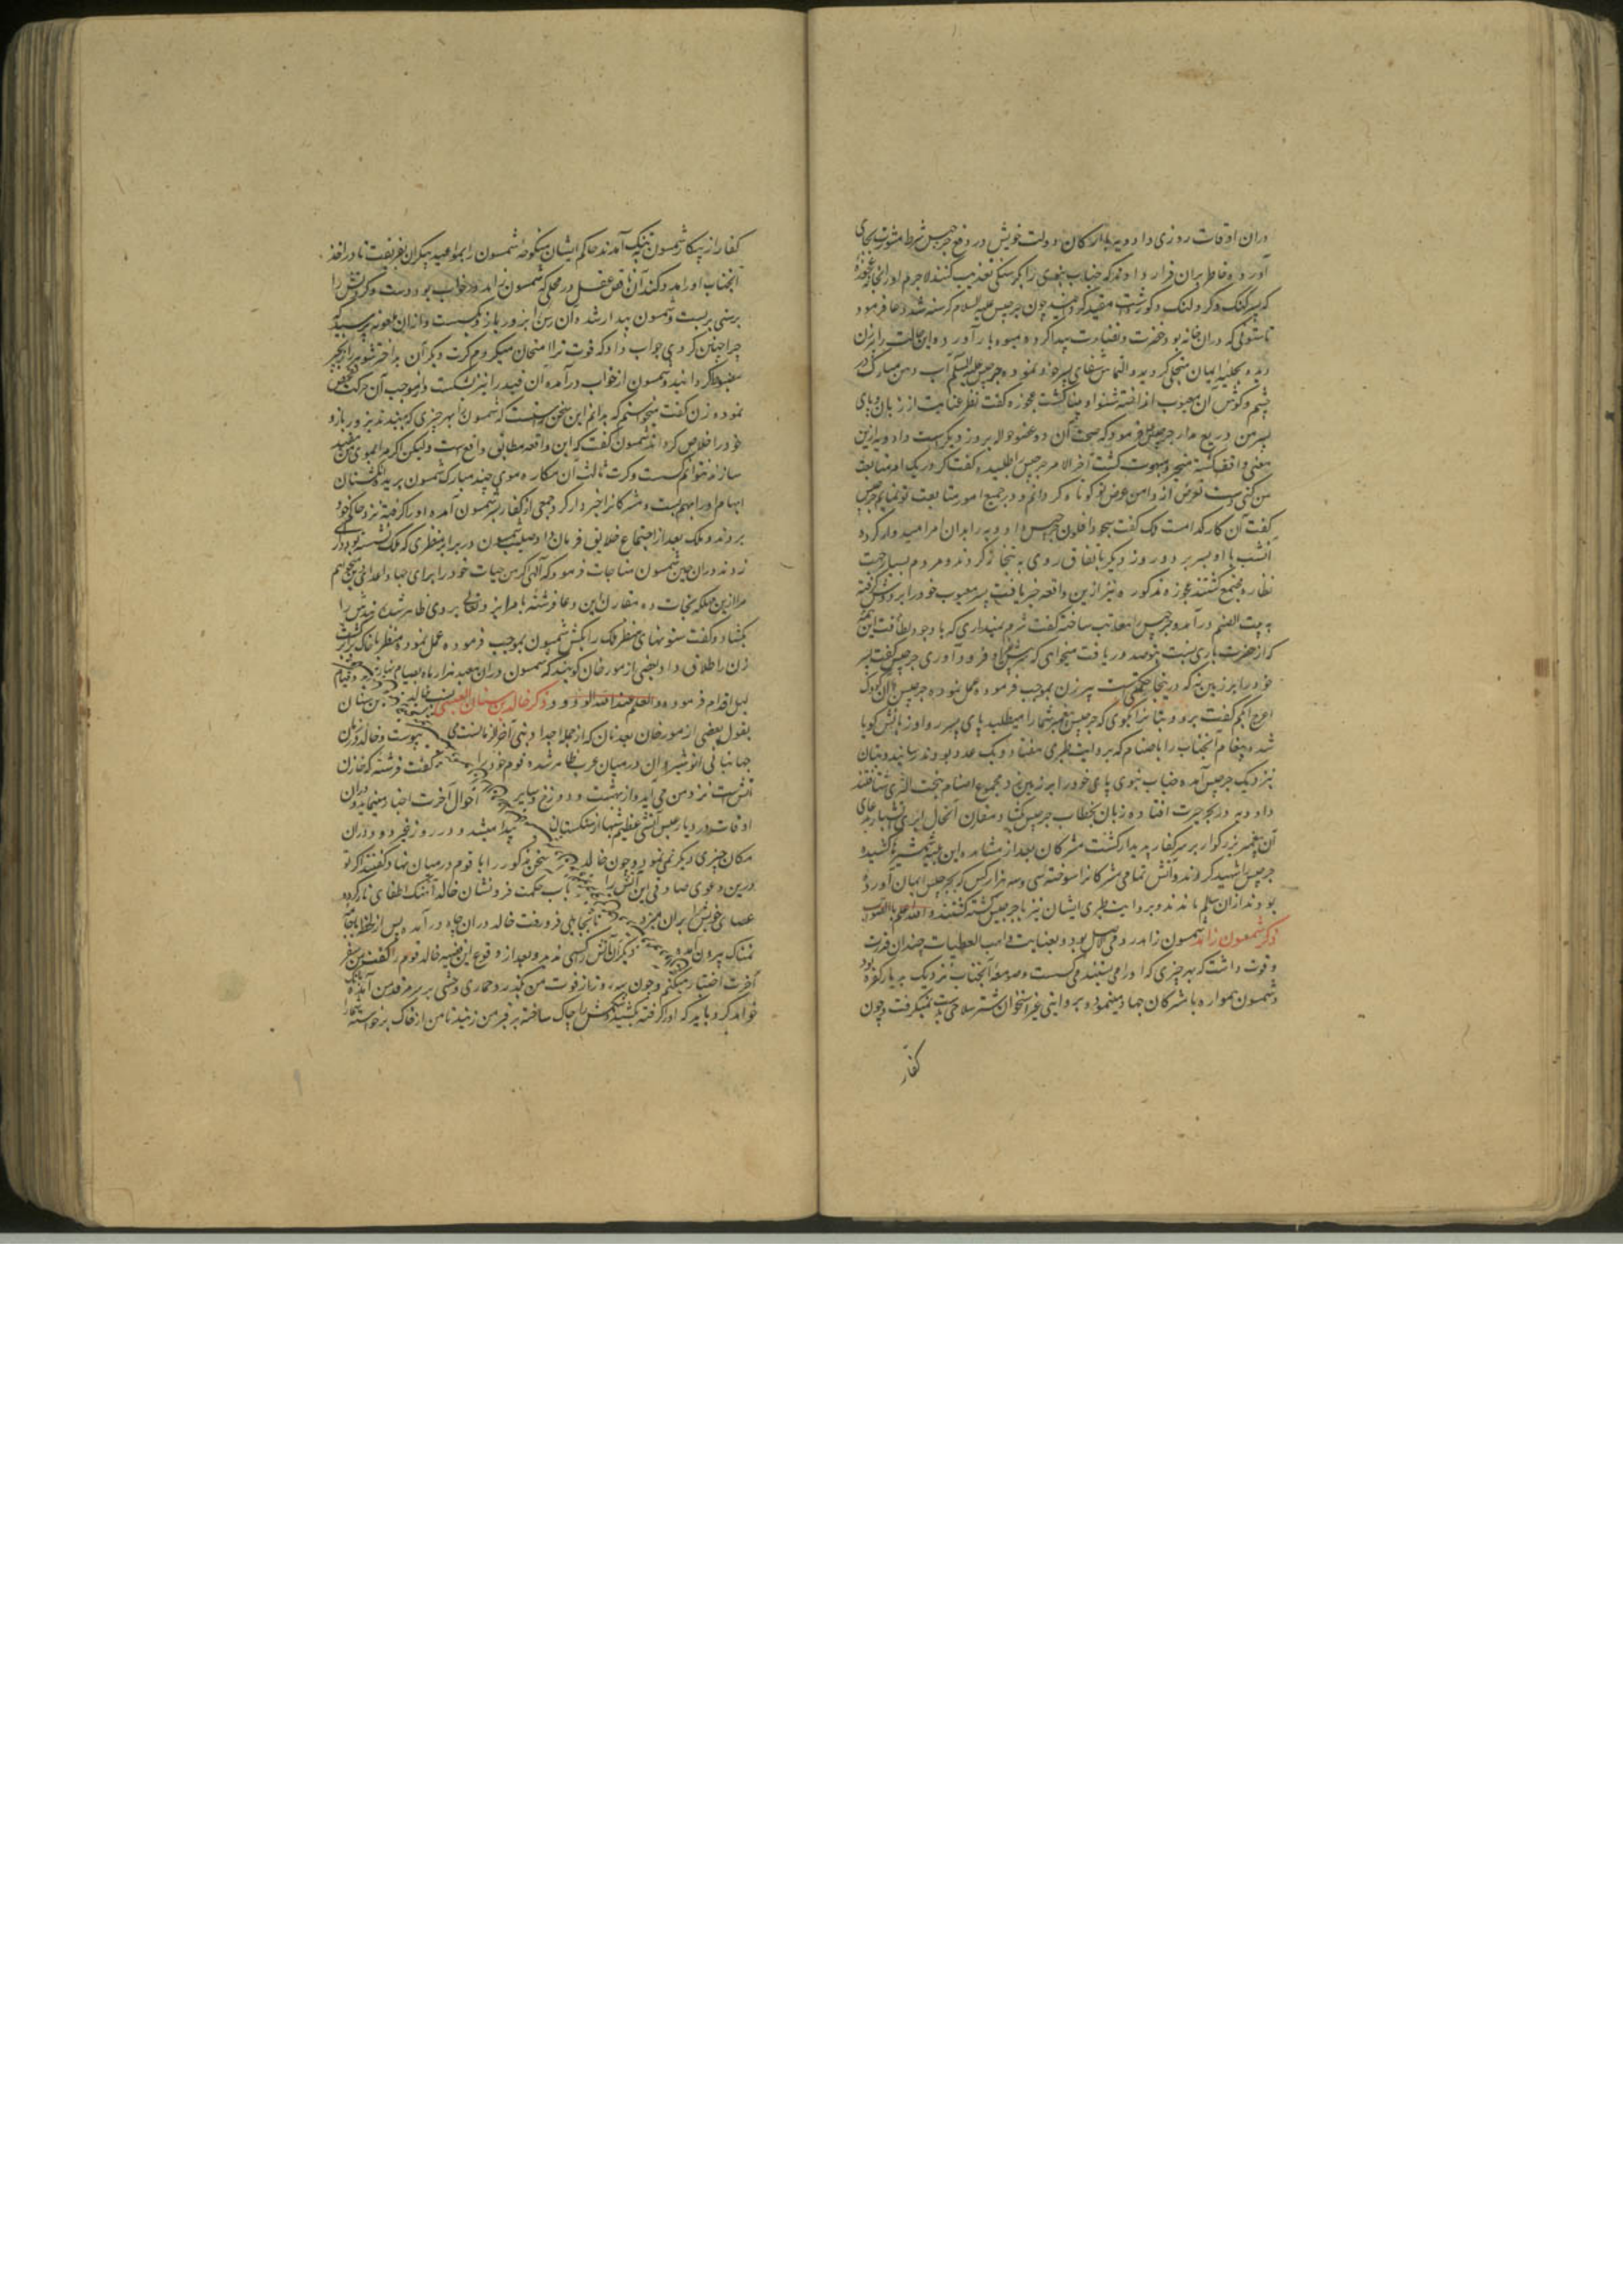 دران اوقات روزی دادویه با ارکان دولت خویش در دفع جرجیس شرط مشورت بجای
آورده خاطر بران قرار دادند که جناب نبوی را بکرسنکی تعذیب کنند لاجرم او را بخانه عجوزهٔ
که پسر کنک و کر و لنک و کور داشت مقید کردانید چون جرجیس علیه السلام کرسنه شد دعا فرمود
تا ستونی که دران خانه بود خضرت و نضارت پیدا کرده میوه بار آورد و این حالت را پیرزن
دیده بحلیه ایمان متحلی کردید و التماس شفای پسر خود نموده جرجیس علیه السلام آب دهن مبارک در
چشم و کوش آن معیوب انداخته شنوا و بینا کشت عجوزه کفت نظر عنایت از زبان و پای
پسر من دریغ مدار جرجیس فرمود که صحت آن دو عضو حالا بروز دیکرست دادویه ازین
معنی واقف کشته متحیر و مبهوت کشت آخر الامر جرجیس را طلبیده کفت که در یک امر متابعت
من کنی دست تعرض از دامن عرض تو کوتاه کردانم و در جمیع امور متابعت تو نمایم جرجیس
کفت آن کار کدامست ملک کفت سجود افلون جرجیس دادویه را بران امر امیدوار کرده
آنشب با او بسر برد و روز دیکر باتفاق روی به بتخانه کردند و مردم بسیار جهت
نظاره مجتمع کشتند عجوزه مذکوره نیز ازین واقعه خبر یافت پسر معیوب خود را بر دوش کرفته
به بیت الصنم درآمد و جرجیس را معاتب ساخته کفت شرم نمیداری که با وجود لطافت این همه
که از حضرت باری نسبت بتو صدور یافت میخواهی که پیش بت سر فرود آوری جرجیس کفت پسر
خود را بر زمین نه که در اینجا حکمتی است پیرزن بموجب فرموده عمل نموده جرجیس با آن کودک
اعرج ابکم کفت برو و بتانرا بکوی که جرجیس پیغمبر شما را میطلبد پای پسر روا و زبانش کویا
شده پیغام آنجناب را باصنام که بروایت طبری هفتاد و یک عدد بودند رسانید و بتان
نزدیک جرجیس آمده جناب نبوی پای خود را بر زمین زد مجموع اصنام بتحت الثری شتافتند
دادویه در بحر حیرت افتاده زبان بخطاب جرجیس کشاد و مقارن آنحال ابری آتشبار بدعای
آن پیغمبر بزرکوار بر سر کفار پدیدار کشت مشرکان بعد از مشاهده این علامت شمشیرها کشیده
جرجیس را شهید کردند و آتش تمامی مشرکانرا سوخته سی و سه هزار کس که بجرجیس ایمان آورده
بودند ازان سالم ماندند و بروایت طبری ایشان نیز با جرجیس کشته کشتند و الله اعلم بالصواب
ذکر شمعون زاهد شمسون زاهد رومی الاصل بود و بعنایت واهب العطیات چندان قدرت
و قوت داشت که بهر چیزی که او را می بستند می کسست و صومعهٔ آنجناب نزدیک بدیار کفره بود
و شمسون همواره با مشرکان جهاد مینمود و بروایتی غیر استخوان شتر سلاحی بدست نمیکرفت و چون
کفار
کفار از پیکار شمسون به تنک آمدند حاکم ایشان منکوحه شمسون را بمواعید بیکران بفریفت تا در اخذ
آنجناب او را مدد کند آن ناقص عقل در محلی که شمسون زاهد در خواب بود دست و کردنش را
برسنی بربست و شمسون بیدار شده آن رسن را بزور بازو بکسست و از ان ملعونه پرسید که
چرا چنین کردی جواب داد که قوت ترا امتحان میکردم کرت دیکر آن بداختر شوهر را بزنجیر
مضبوط کردانید و شمسون از خواب درآمده آن قید را نیز شکست و از موجب آن حرکت تفحص
نموده زن کفت میخواستم که بدانم این سخن راست که شمسون را بهر چیزی که ببندند بزور بازو
خود را خلاص کرداند شمسون کفت که این واقعه مطابق واقع هست ولیکن اکر مرا بموی من مقید
سازند نتوانم کسست و کرت ثالث آن مکاره موی چند مبارک شمسون برید و انکشتان
ابهام او را بهم بست و مشرکانرا خبردار کرد و جمعی از کفار بسر شمسون آمده او را کرفته نزد حاکم خود
بردند و ملک بعد از اجتماع خلایق فرمان داد صلیب شمسون در برابر منظری که ملک نشسته بود داری
زدند دران حین شمسون مناجات فرمود که آلهی اکر من حیات خود را برای جهاد اعدای تو میخواهم
مرا ازین مهلکه نجات ده مقارن این دعا فرشته بامر ایزد تعالی بروی ظاهر شد و بندش را
بکشاد و کفت ستونهای منظر ملک را بکش شمسون بموجب فرموده عمل نموده منظر با خاک برابر کشت
زن را طلاق داد بعضی از مورخان کویند که شمسون دران معبد هزار ماه بصیام نهار و قیام
لیل اقدام فرموده و العلم عند الله الودود ذکر خالد بن سنان العبسی نسب خالد بن سنان
بقول بعضی از مورخان بعدنان که از جمله اجداد نبی آخر الزمانست می پیوست و خالد در زمان
جهانبانی انوشیروان در میان عرب ظاهر شده قوم خود را کفت فرشته که خازن
آتش است نزد من می آید و از بهشت و دوزخ و سایر احوال آخرت اخبار مینماید و دران
اوقات در دیار عبس آتشی عظیم شبها از سنکستان پیدا میشد و در روز غیر دود دران
مکان چیزی دیکر نمی نمود و چون خالد سخن مذکور را با قوم در میان نهاد کفتند اکر تو
درین دعوی صادقی این آتش را بآب حکمت فرونشان خالد آهنک اطفای نار کرده
عصای خویش را بران میزد تا بچاهی فرو رفت خالد دران چاه درآمده پس از لحظه با جامهٔ
نمناک بیرون آمد و دیکر آن آتش را کسی ندید و بعد از وقوع این قضیه خالد قوم را کفت من سفر
آخرت اختیار میکنم و چون سه روز از فوت من بکذرد حماری وحشی بر سر مرقد من آمده بانک
خواهد کرد باید که او را کرفته بکشید و شکمش را چاک ساخته بر قبر من زنید تا من از خاک برخواسته شما را